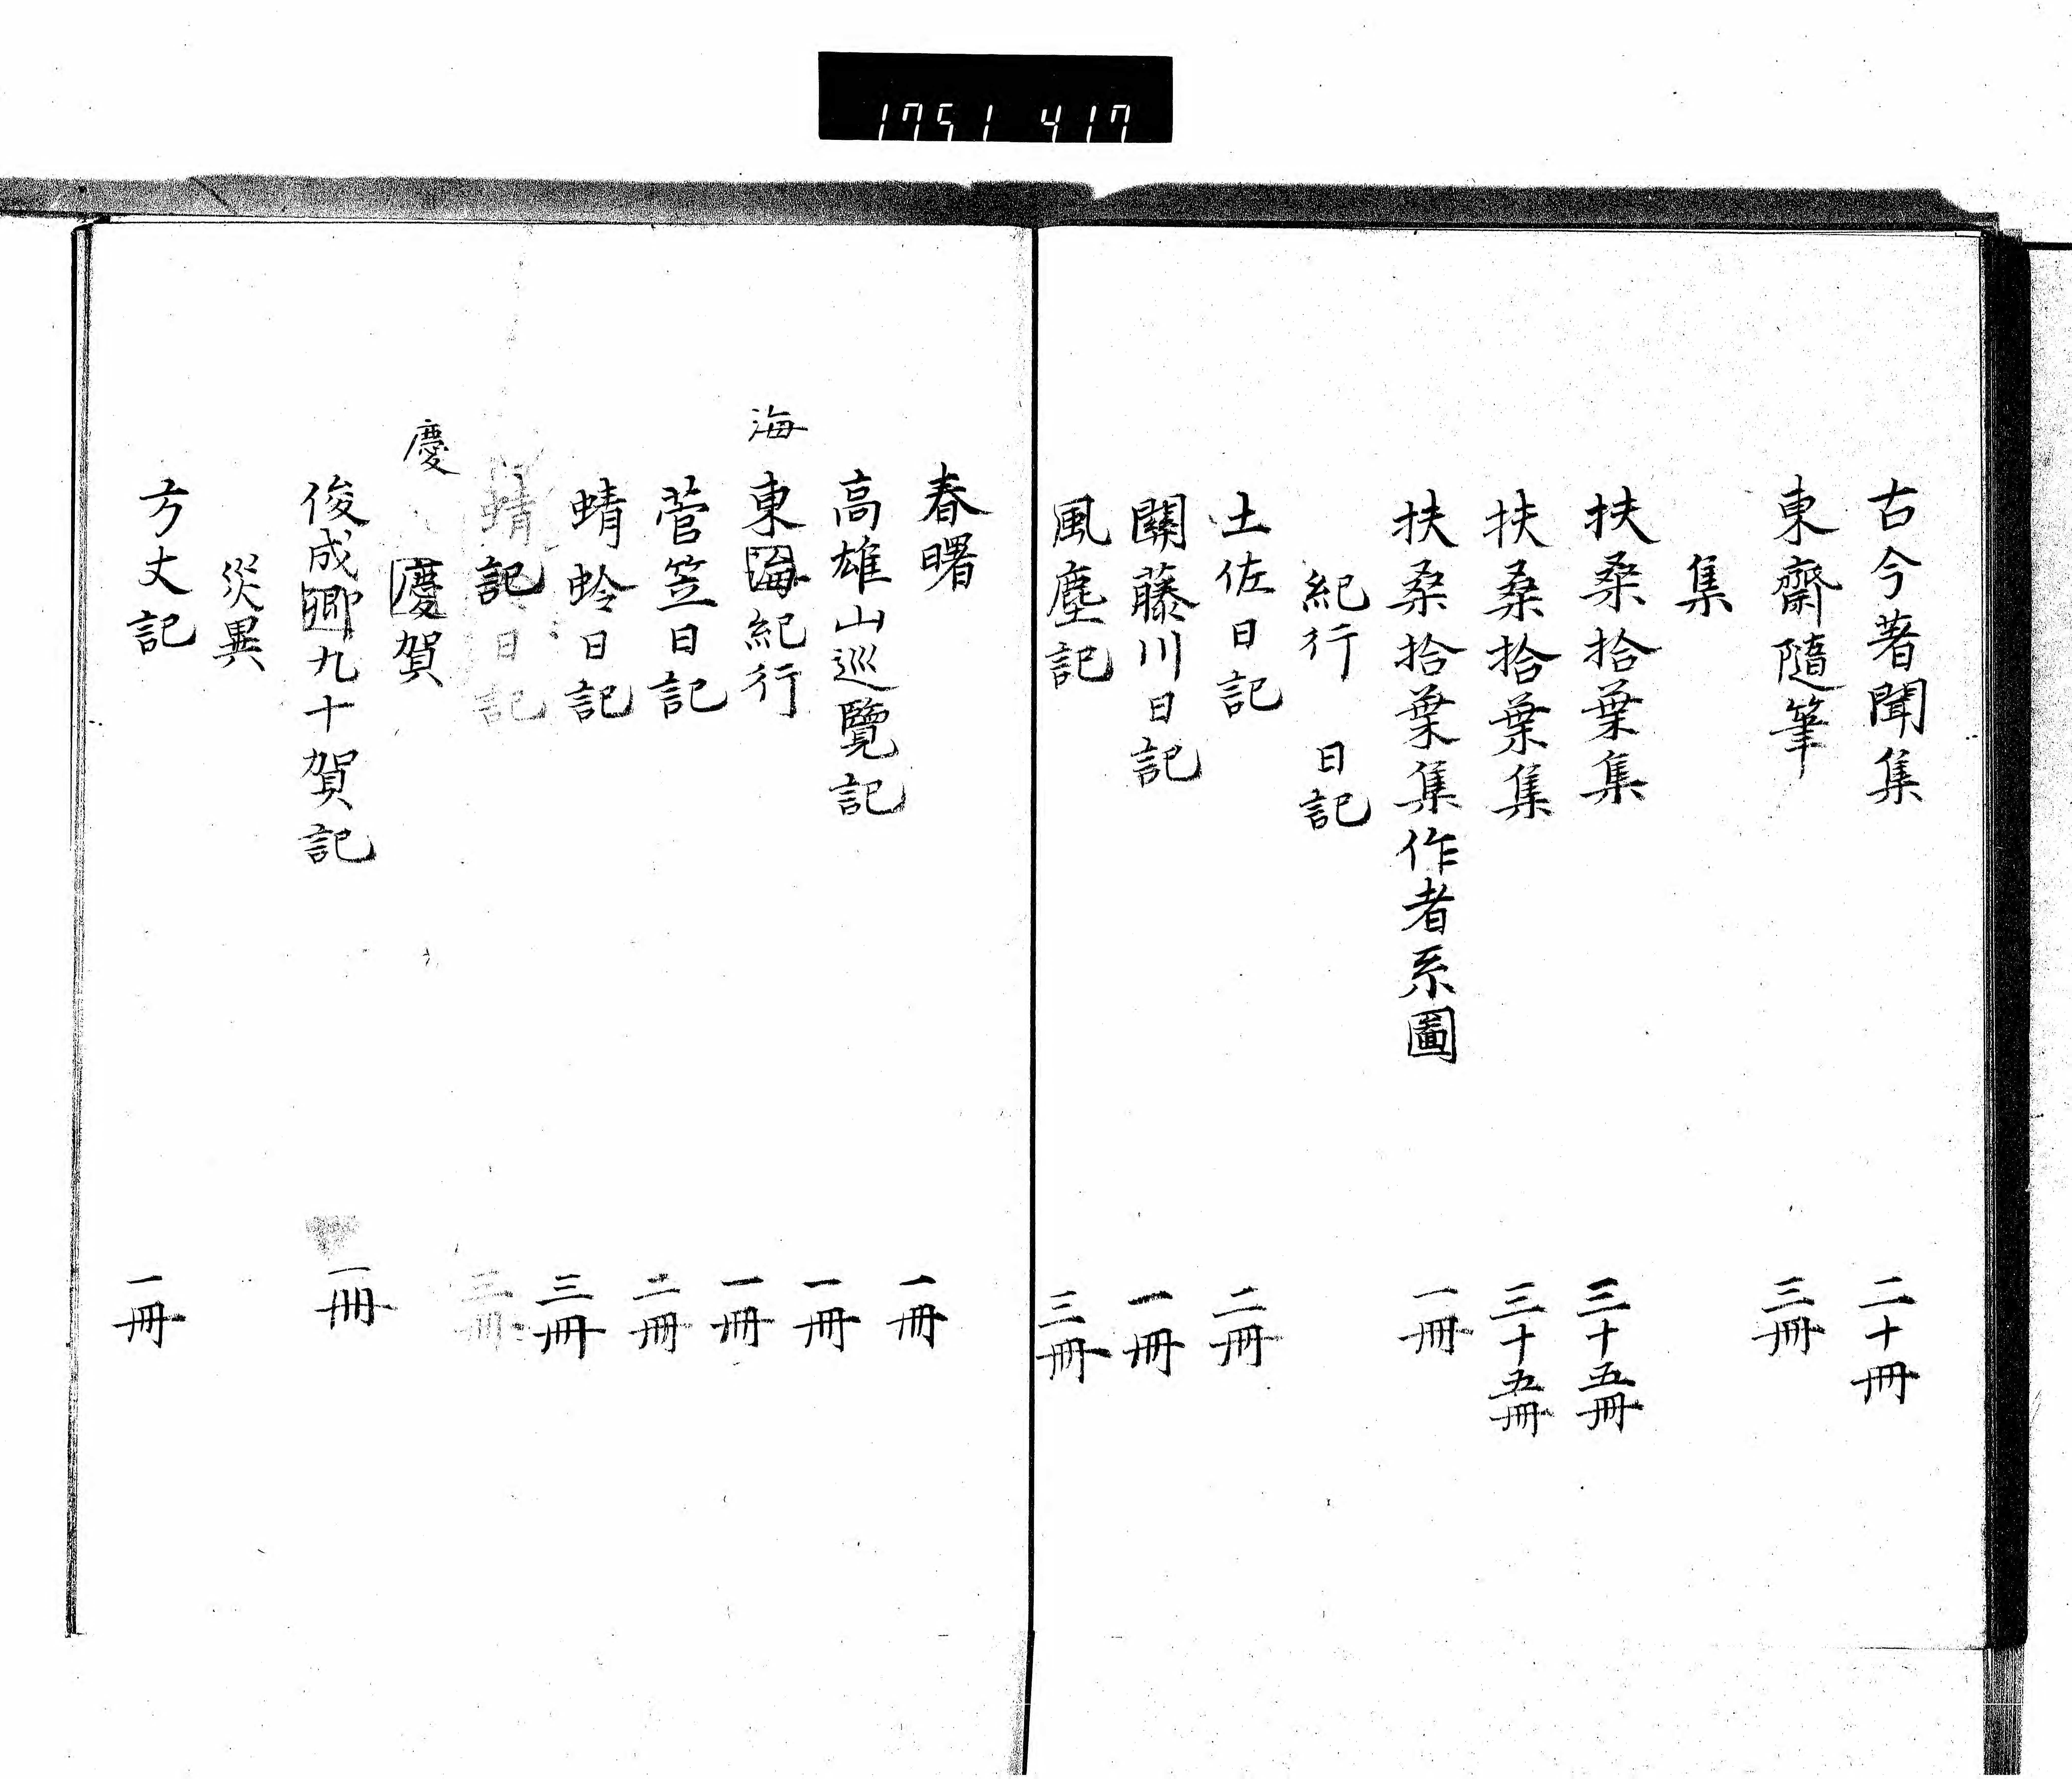 1751 417
古今著聞集 二十冊
東齋隨筆 三冊
集
扶桑拾葉集 三十五冊
扶桑拾葉集 三十五冊
扶桑拾葉集作者系圖 一冊
紀行 日記
土佐日記 二冊
關藤川日記 一冊
風塵記 三冊
春曙 一冊
高雄山巡覽記 一冊
海
東海紀行 一冊
菅笠日記 二冊
蜻蛉日記 三冊
蜻記日記 三冊
慶
慶賀
俊成卿九十賀記 一冊
災異
方丈記 一冊